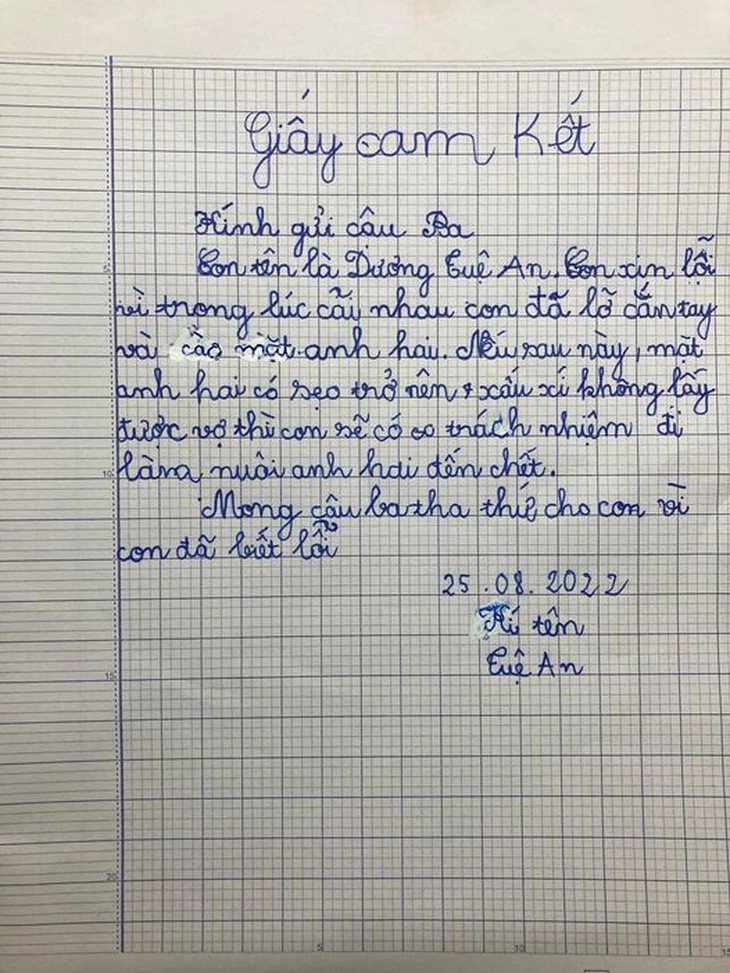 Giấy cam kết
Kính gửi cậu Ba
Con tên là Dương Tuệ An. Con xin lỗi
vì trong lúc cãi nhau con đã lỡ cắn tay
và cào mặt anh hai. Nếu sau này, mặt
anh hai có sẹo trở nên xấu xí không lấy
được vợ thì con sẽ có trách nhiệm đi
làm nuôi anh hai đến chết.
Mong cậu ba tha thứ cho con vì
con đã biết lỗi
25.08.2022
Kí tên
Tuệ An
5
10
15
20
5
10
15